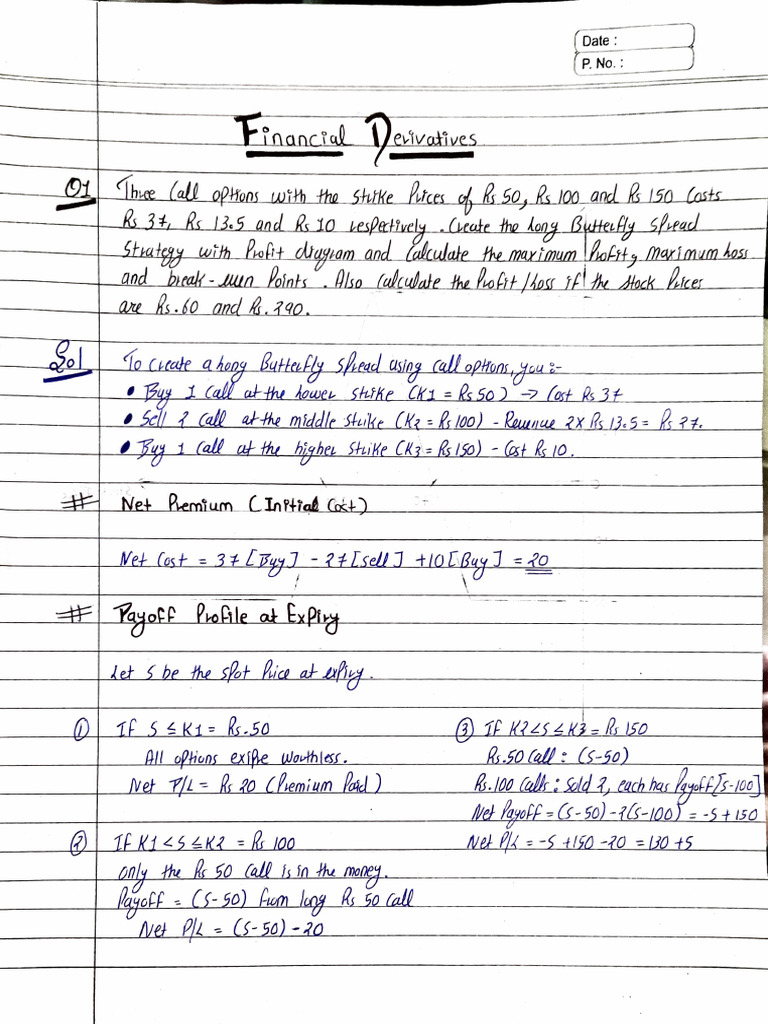 Date :
P. No. :
Financial Derivatives
Q1 Three Call options with the strike Prices of Rs 50, Rs 100 and Rs 150 Costs
Rs 37, Rs 13.5 and Rs 10 respectively. Create the long Butterfly Spread
Strategy with Profit diagram and Calculate the maximum Profit, maximum loss
and break-even Points. Also Calculate the Profit/Loss if the stock Prices
are Rs.60 and Rs.290.
Sol To create a long Butterfly Spread using call options, you :-
• Buy 1 Call at the lower strike (K1 = Rs 50) → Cost Rs 37
• Sell 2 call at the middle strike (K2 = Rs 100) - Revenue 2x Rs 13.5 = Rs 27.
• Buy 1 call at the higher strike (K3 = Rs 150) - Cost Rs 10.
# Net Premium (Initial Cost)
Net Cost = 37 [Buy] - 27 [Sell] + 10 [Buy] = 20
# Payoff Profile at Expiry
Let S be the spot Price at expiry.
① If S ≤ K1 = Rs.50
All options exipre worthless.
Net P/L = Rs 20 (Premium Paid)
② If K1 < S ≤ K2 = Rs 100
only the Rs 50 call is in the money.
Payoff = (S-50) from long Rs 50 call
Net P/L = (S-50) - 20
③ If K2 < S ≤ K3 = Rs 150
Rs.50 Call : (S-50)
Rs.100 Calls : Sold 2, each has Payoff [S-100]
Net Payoff = (S-50) - 2(S-100) = -S + 150
Net P/L = -S + 150 - 20 = 130 + S